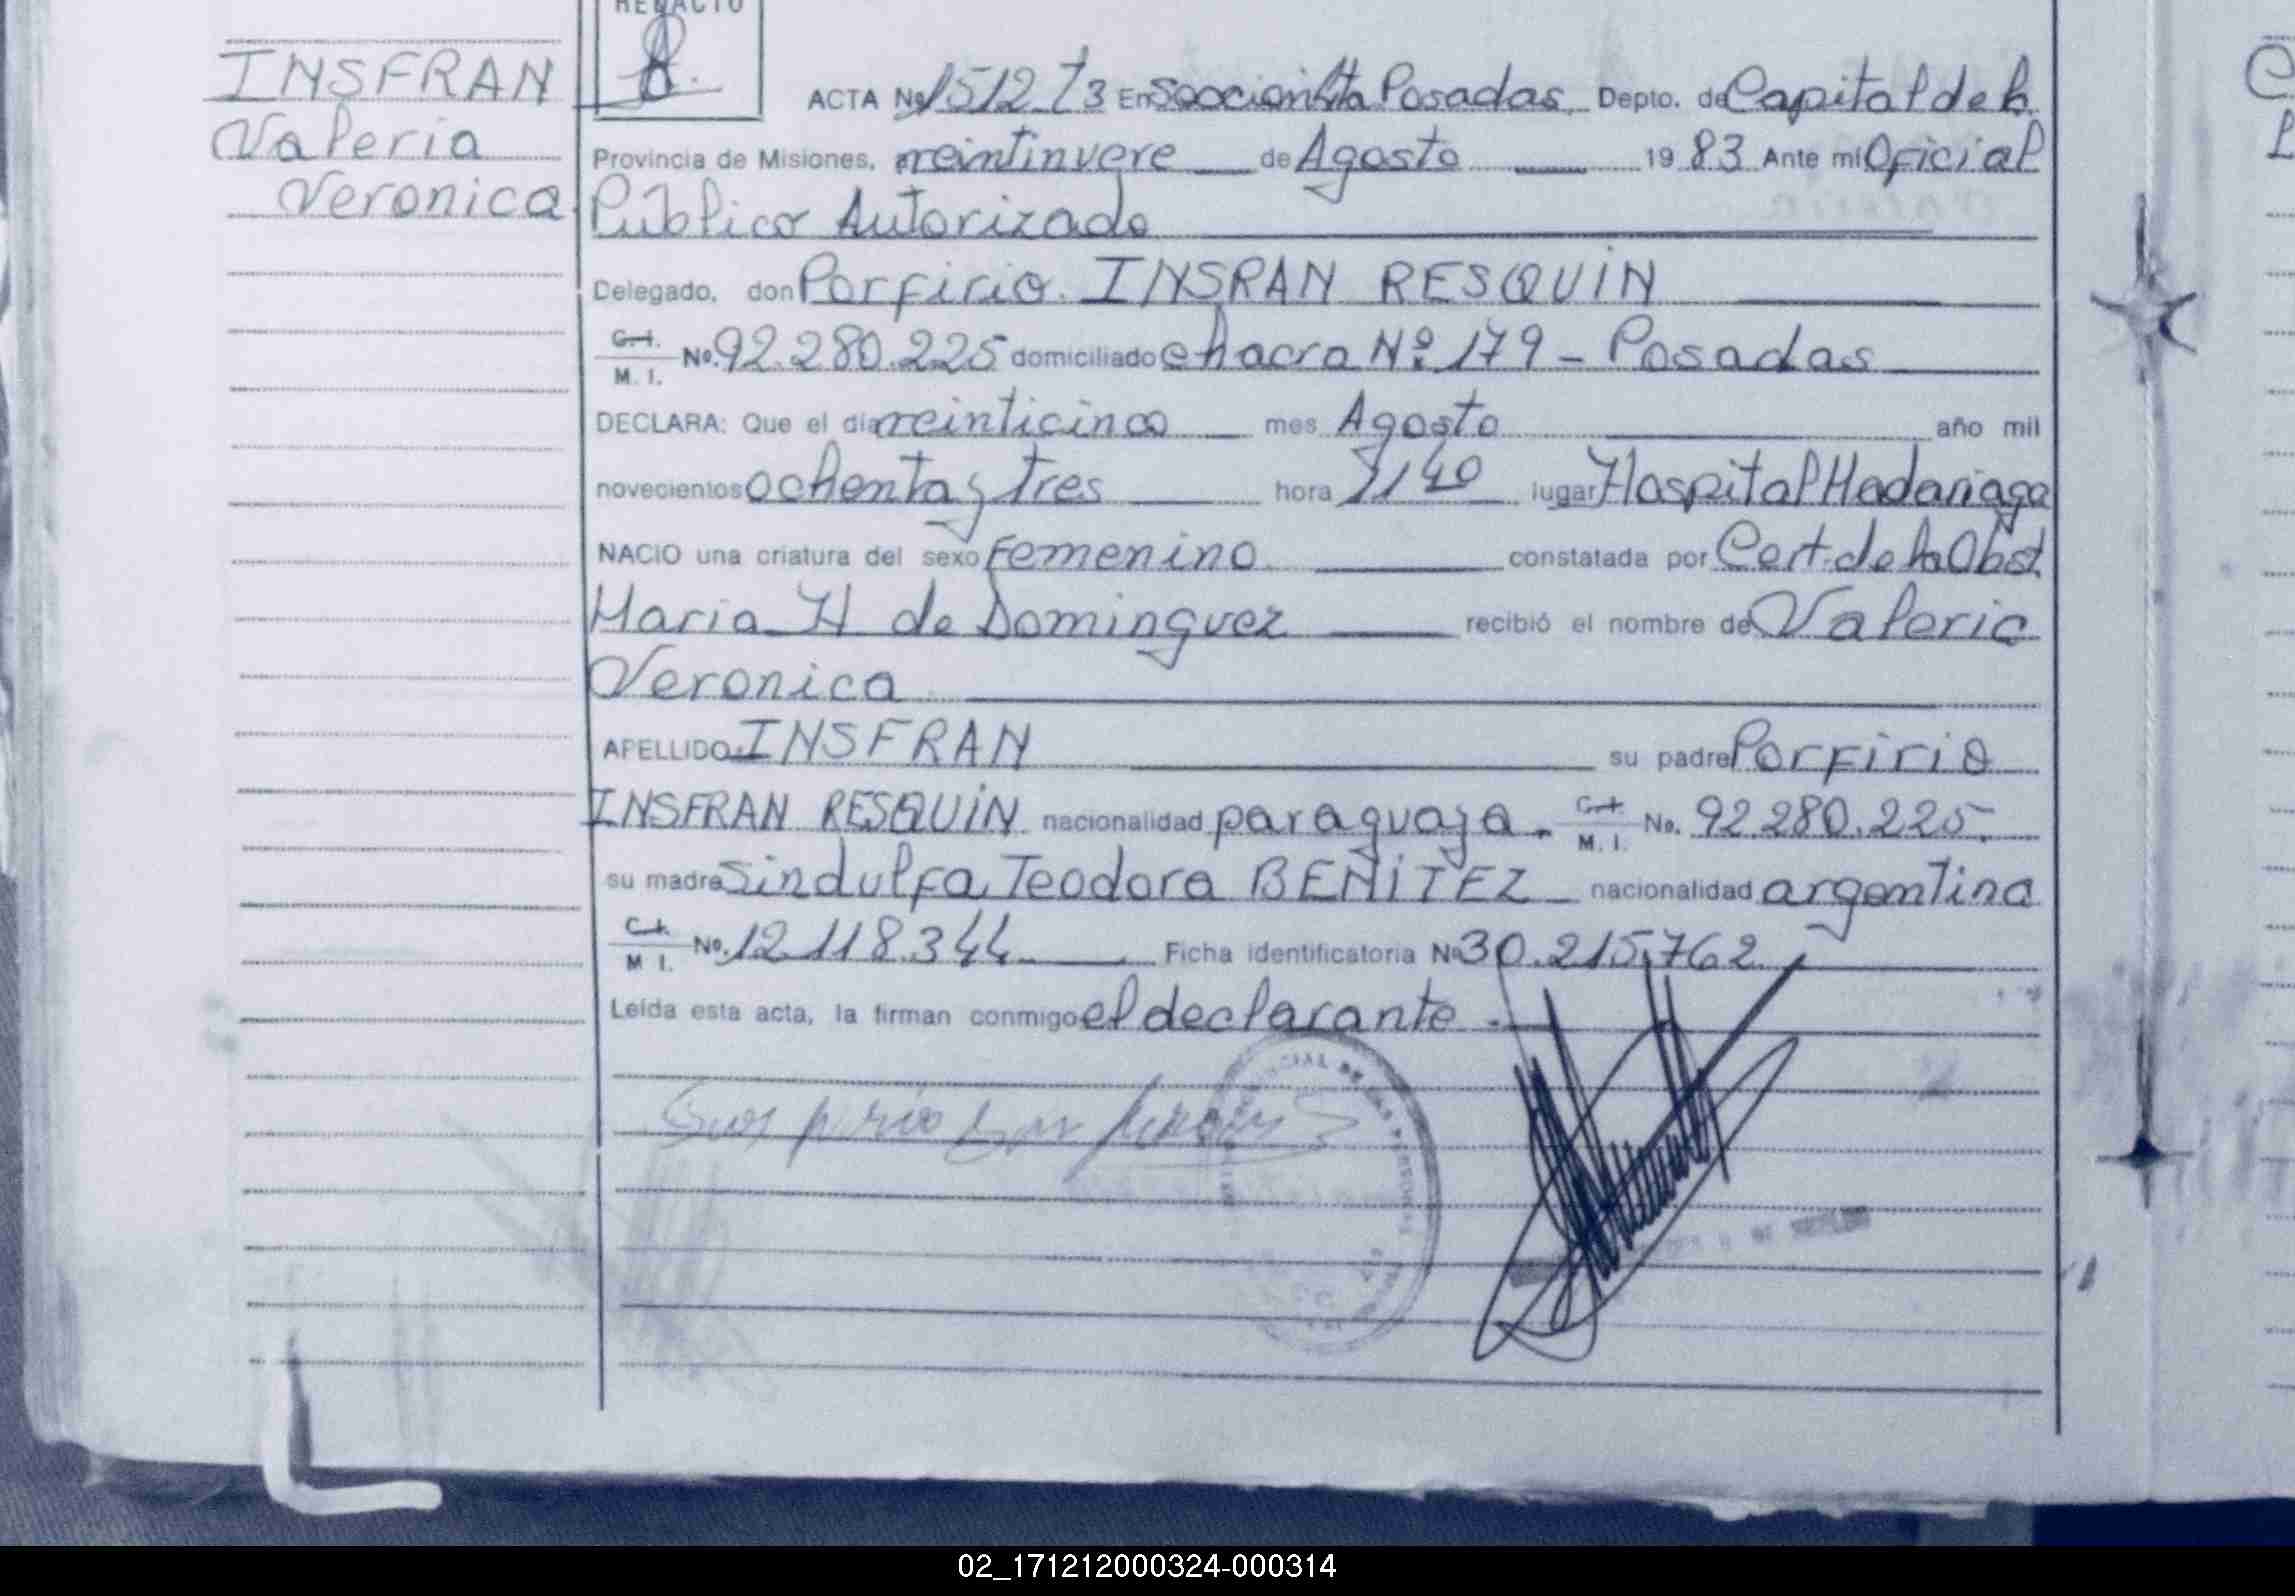 REDACTO
INSFRAN
Valeria
Veronica
ACTA Nº 1512 T3 En Seccion 5ta Posadas Depto. de Capital de la
Provincia de Misiones, veintinueve de Agosto 1983 Ante mí Oficial
Público Autorizado
Delegado, don Porfirio INSRAN RESQUIN
C.I. M. I. Nº. 92.280.225 domiciliado chacra Nº 179 - Posadas
DECLARA: Que el día veinticinco mes Agosto año mil
novecientos ochenta y tres hora 1140 lugar Hospital Madariaga
NACIO una criatura del sexo Femenino constatada por Cert. de la Obst.
Maria H de Dominguez recibió el nombre de Valeria
Veronica
APELLIDO INSFRAN su padre Porfirio
INSFRAN RESQUIN nacionalidad paraguaya. C.I. M. I. No. 92.280.225.
su madre Sindulfa Teodora BENITEZ nacionalidad argentina
C.I. M I. Nº. 12.118.344 Ficha identificatoria Nº 30.215.762
Leída esta acta, la firman conmigo el declarante.
02_171212000324-000314